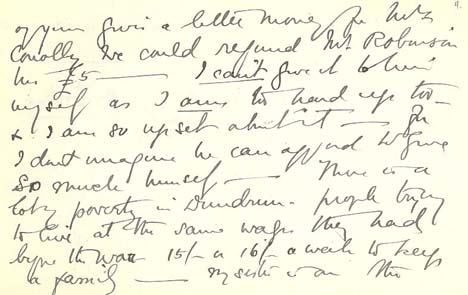 9.
of your giving a little money for Mrs
Conolly we could refund Mr Robinson
his £5 — I can't give it to him
myself as I am too hard up too —
& I am so upset about it — for
I dont imagine he can afford to give
so much himself — There is a
lot of poverty in Dundrum - people trying
to live at the same wages they had
before the war 15/- or 16/- a week to keep
a family — my sister is on the